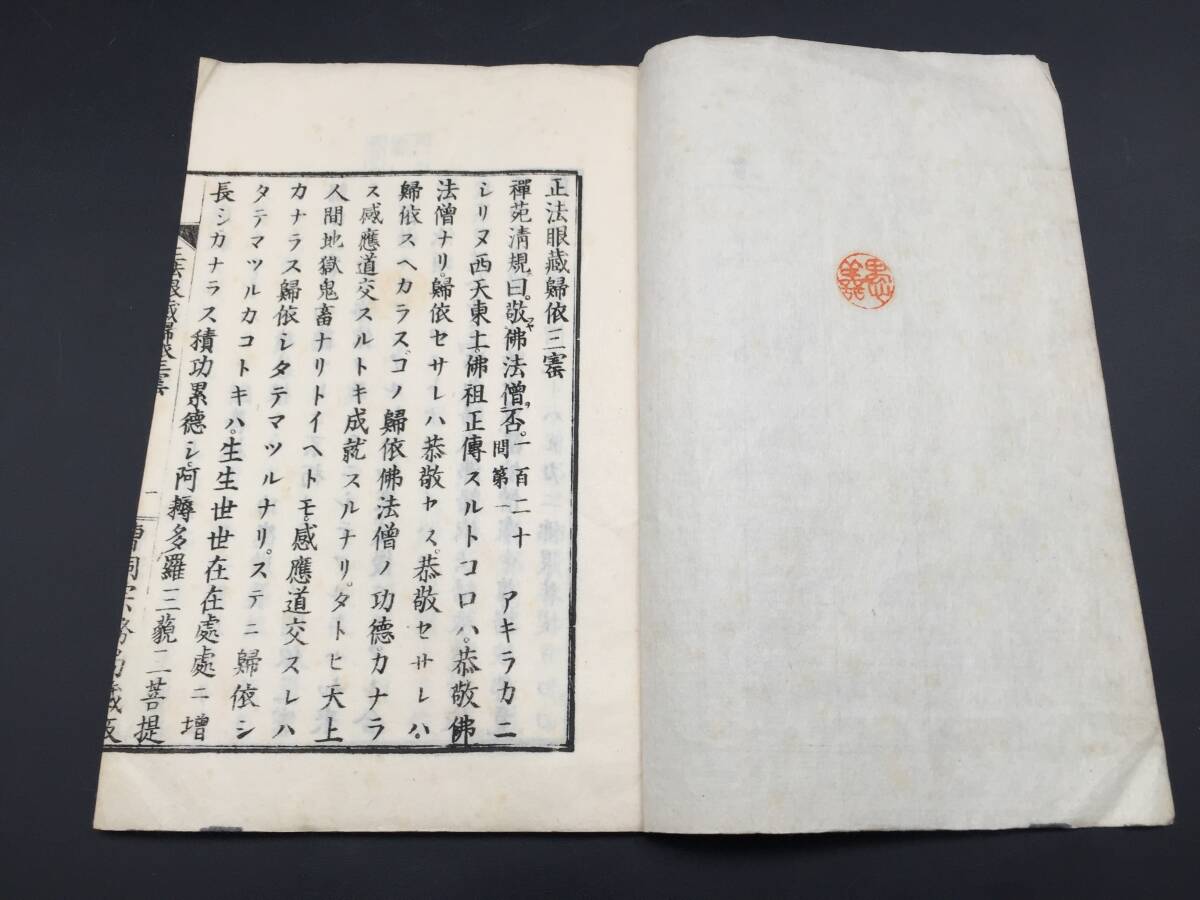 正法眼藏歸依三寳
禪苑清規曰。敬佛法僧否。一百二十問第一 アキラカニ
シリヌ西天東土。佛祖正傳スルトコロハ。恭敬佛
法僧ナリ。歸依セサレハ恭敬セス。恭敬セサレハ
歸依スヘカラス。コノ歸依佛法僧ノ功德。カナラ
ス感應道交スルトキ成就スルナリ。タトヒ天上
人間地獄鬼畜ナリトイヘトモ。感應道交スレハ
カナラス歸依シタテマツルナリ。ステニ歸依シ
タテマツルカコトキハ。生生世世在在處處ニ增
長シカナラス積功累德シ。阿耨多羅三藐三菩提
正法眼藏歸依三寳
一
曹洞宗務局藏版